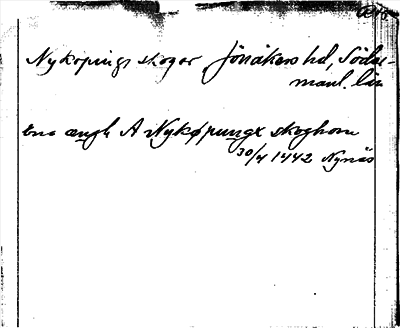 Nykopings skogar Jönåkers hd, Söder-
manl. län
ena ængh A Nykøpungx skoghom
30/4 1442 Nynäs